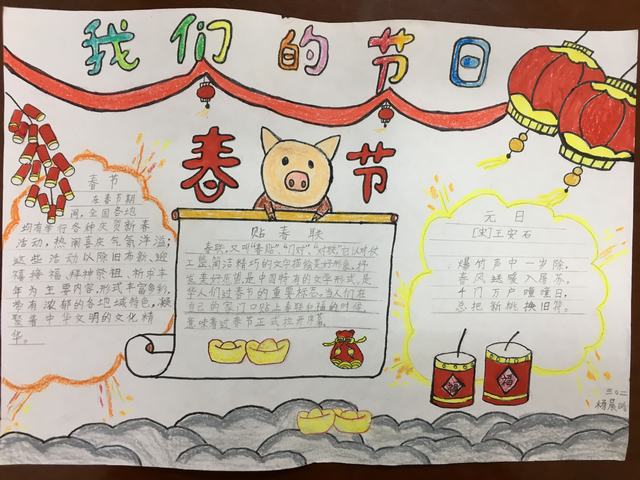 我们的节日
春节
春节
在春节期
间,全国各地
均有举行各种庆贺新春
活动,热闹喜庆气氛洋溢;
这些活动以除旧布新、迎
禧接福、拜神祭祖、祈求丰
年为主要内容,形式丰富多彩,
带有浓郁的各地域特色,凝
聚着中华文明的文化精
华。
贴春联
春联,又叫“春贴”、“门对”、“对联”,它以对仗
工整、简洁精巧的文字描绘美好形象,抒
发美好愿望,是中国特有的文学形式,是
华人们过春节的重要标志。当人们在
自己的家门口贴上春联和福的时候,
意味着过春节正式拉开序幕。
元日
[宋]王安石
爆竹声中一岁除,
春风送暖入屠苏。
千门万户曈曈日,
总把新桃换旧符。
福
三0二
杨晨